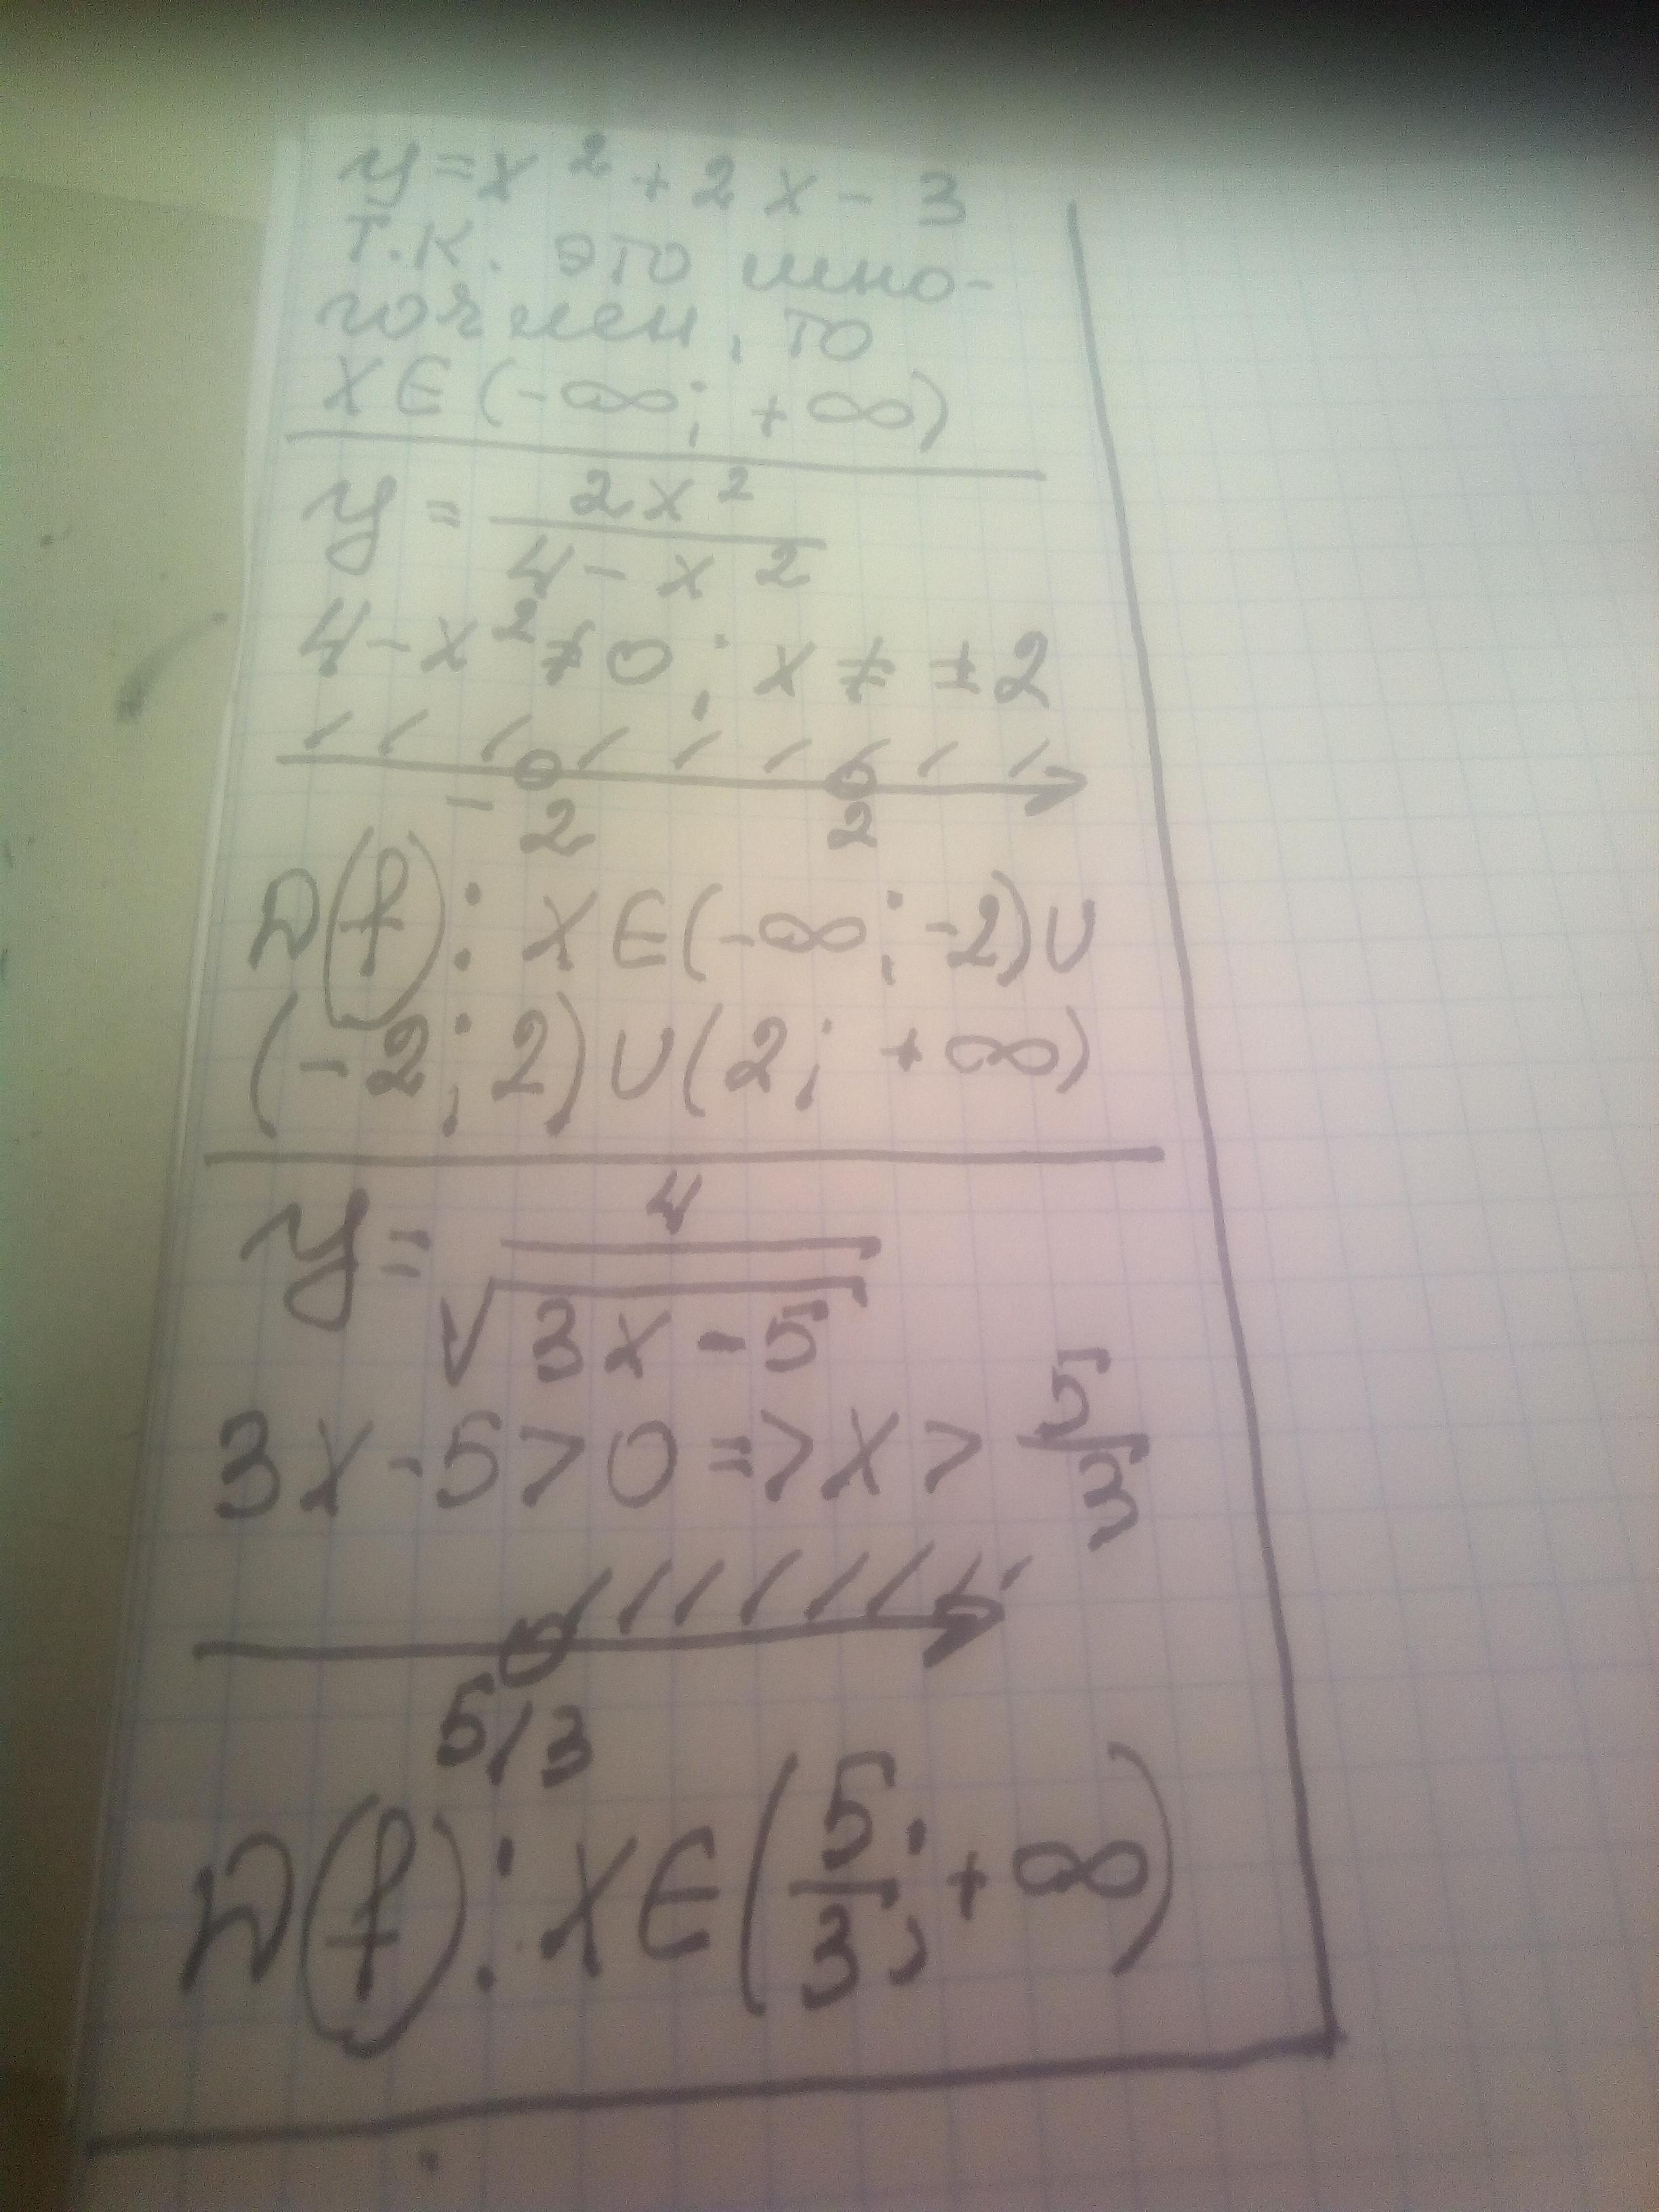 y = x² + 2x - 3
т.к. это мно-
гочлен, то
x ∈ (-∞; +∞)
y = 2x² / 4 - x²
4 - x² ≠ 0; x ≠ ±2
-2 2
D(f): x ∈ (-∞; -2) ∪
(-2; 2) ∪ (2; +∞)
y = 4 / √3x - 5
3x - 5 > 0 => x > 5/3
5/3
D(f): x ∈ (5/3; +∞)